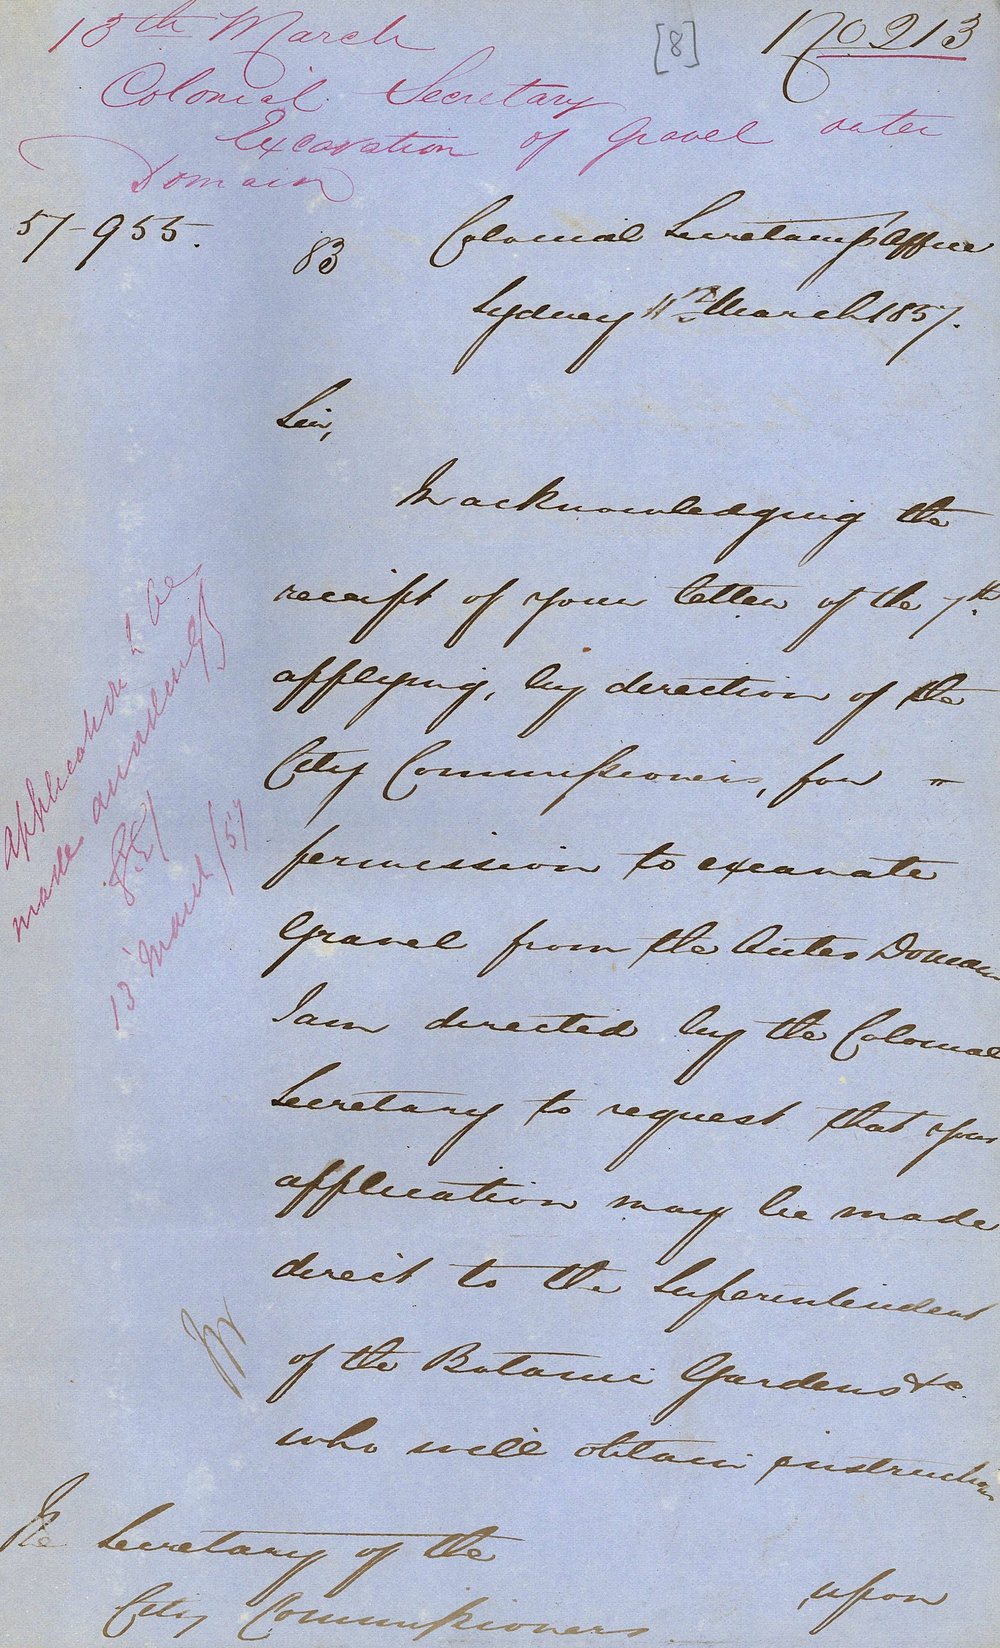 13th March
[8]
No 213
Colonial Secretary
Excavation of gravel outer
Domain
57-955.
83
Colonial Secretary's Office
Sydney 11th March 1857.
Sir,
In acknowledging the
receipt of your letter of the 7th
applying, by direction of the
City Commissioners, for "
permission to excavate
Gravel from the Outer Domain
I am directed by the Colonial
Secretary to request that your
application may be made
direct to the Superintendent
of the Botanic Gardens &c.
who will obtain instructions
upon
The Secretary of the
City Commissioners
Application to be
made accordingly
13 March/57